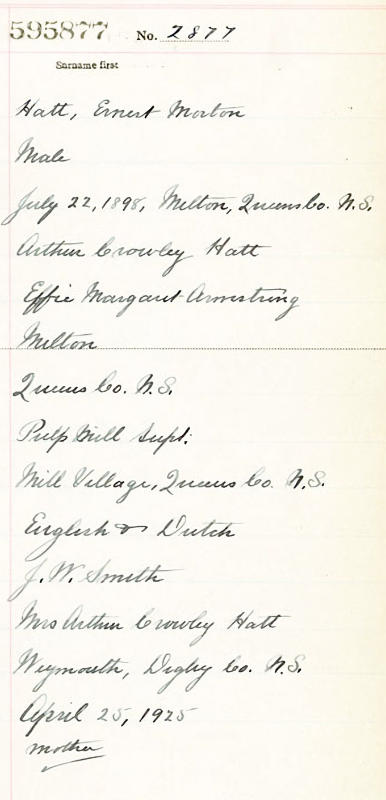 595877 No. 2877
Surname first
Hatt, Ernest Morton
Male
July 22, 1898, Milton, Queens Co. N.S.
Arthur Crowley Hatt
Effie Margaret Armstrong
Milton
Queens Co. N.S.
Pulp Mill Supt.
Mill Village, Queens Co. N.S.
English & Dutch
J. W. Smith
Mrs Arthur Crowley Hatt
Weymouth, Digby Co. N.S.
April 25, 1925
mother